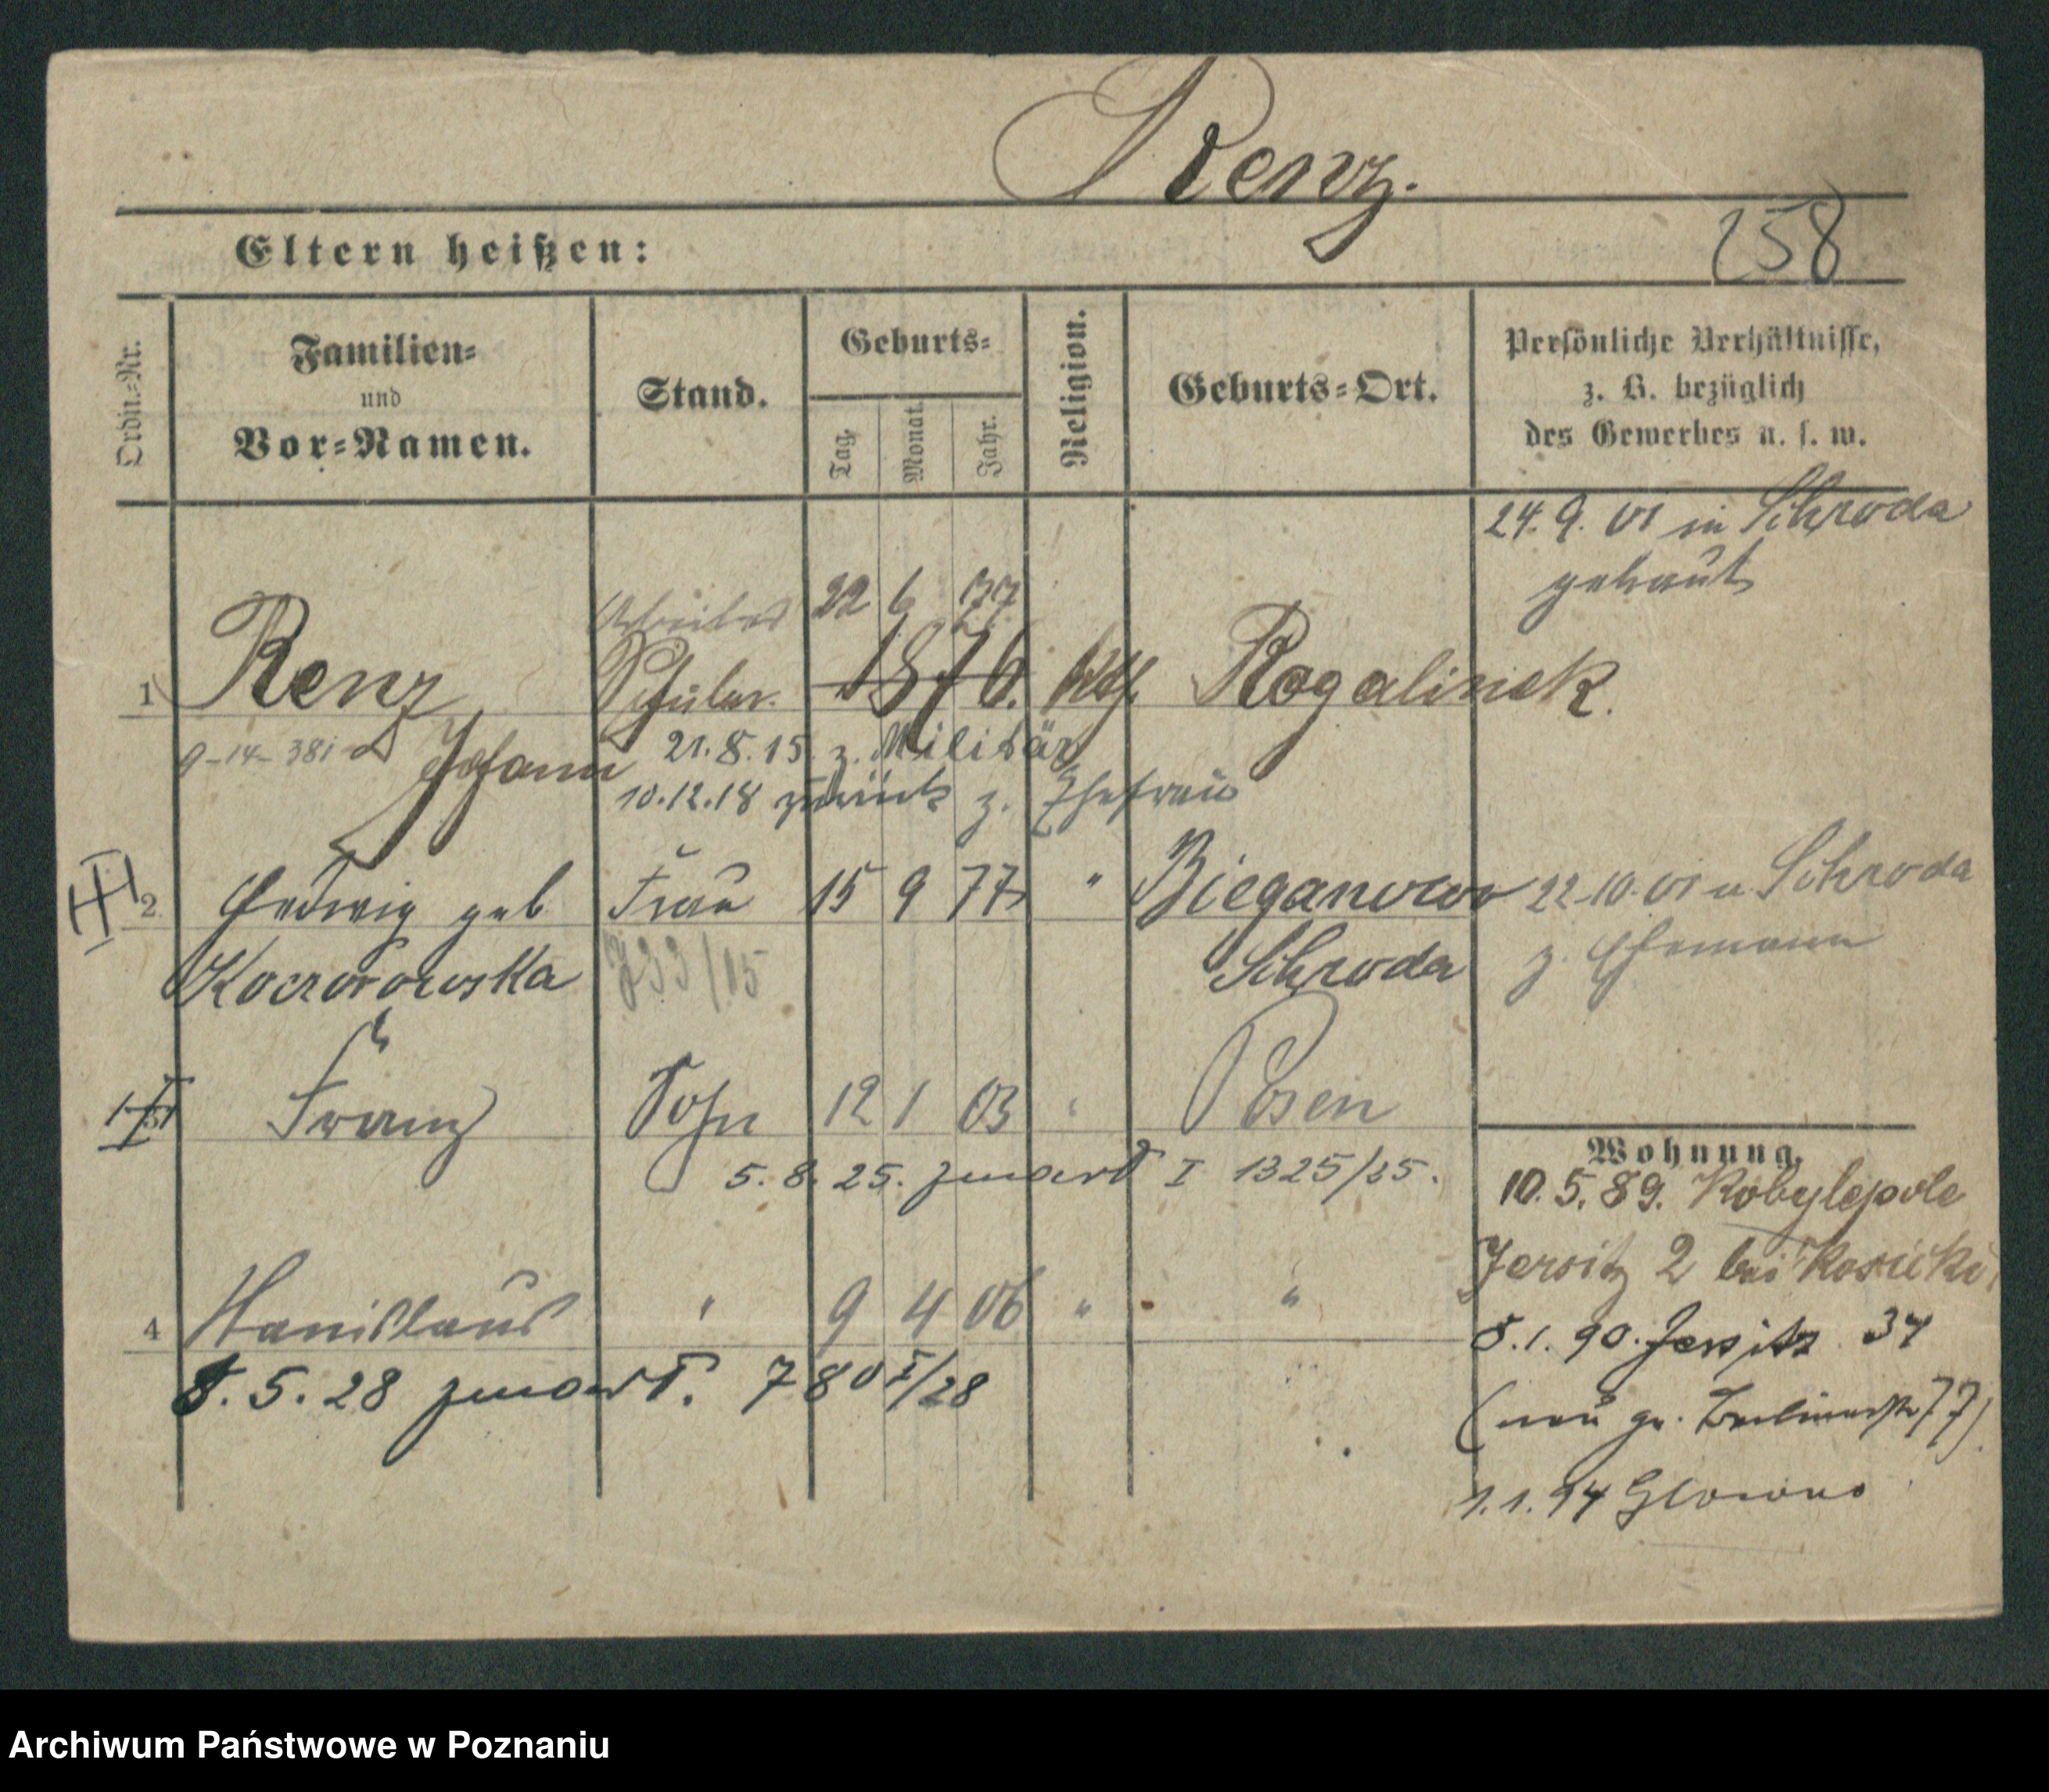 Renz.
258
Eltern heißen:
Ordin.-Nr.
Familien-
und
Vor-Namen.
Stand.
Geburts-
Tag.
Monat.
Jahr.
Religion.
Geburts-Ort.
Persönliche Verhältnisse,
z. B. bezüglich
des Gewerbes u. s. w.
24. 9. 01 in Schroda
getraut
22 6 77
1 Renz Schüler. 1876. kath. Rogalinek.
9-14-381 Johann 21.8.15. z. Militär
10.12.18 zurück z. Ehefrau
2 Hedwig geb Frau 15 9 77 " Bieganowo 22.10.01 v. Schroda
Schroda z. Ehemann
33/15
Franz Sohn 12 1 03 " Posen
5. 8. 25. I 1325/25.
4 Stanislaus " 9 4 06 " "
8. 5. 28 780 I/28
Wohnung.
10. 5. 89. Kobylepole
Jersitz 2 bei Kosicki
8. 1. 90. Jersitz 34
(neu gr. Berlinerstr 77)
1. 1. 94 Glowno
Archiwum Państwowe w Poznaniu